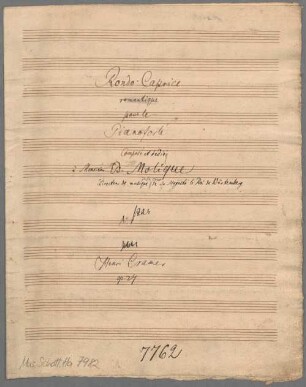 Rondo-Caprice
romantique
pour le
Pianoforte
composé et dédié
à Monsieur B. Molique
Directeur de musique de sa majesté le Roi de Würtemberg
par
Henri Cramer
op. 27
7762
Mus. Schott. Ha 7982